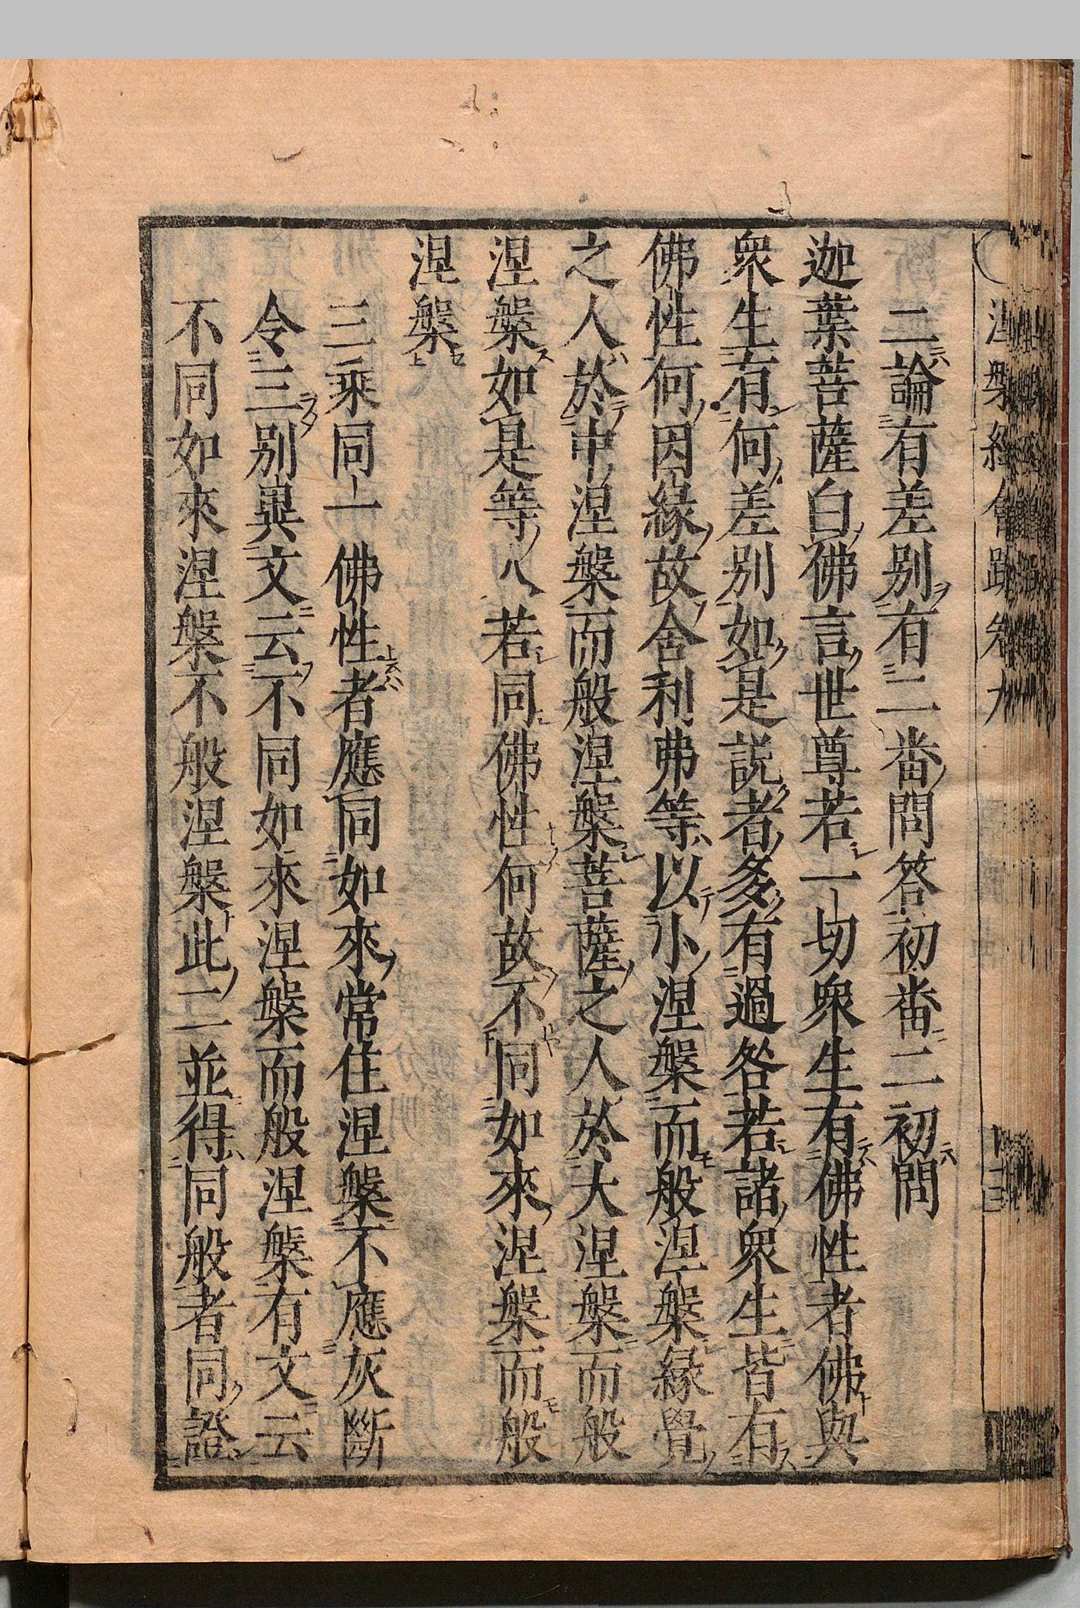 涅槃經會疏卷九
二論有差別有二番問答初番二初問
迦葉菩薩白佛言世尊若一切衆生有佛性者佛與
衆生有何差別如是説者多有過咎若諸衆生皆有
佛性何因緣故舍利弗等以小涅槃而般涅槃緣覺
之人於中涅槃而般涅槃菩薩之人於大涅槃而般
涅槃如是等人若同佛性何故不同如來涅槃而般
涅槃
三乘同一佛性者應同如來常住涅槃不應灰斷
令三別異文云不同如來涅槃而般涅槃有文云
不同如來涅槃不般涅槃此二並得同般者同證